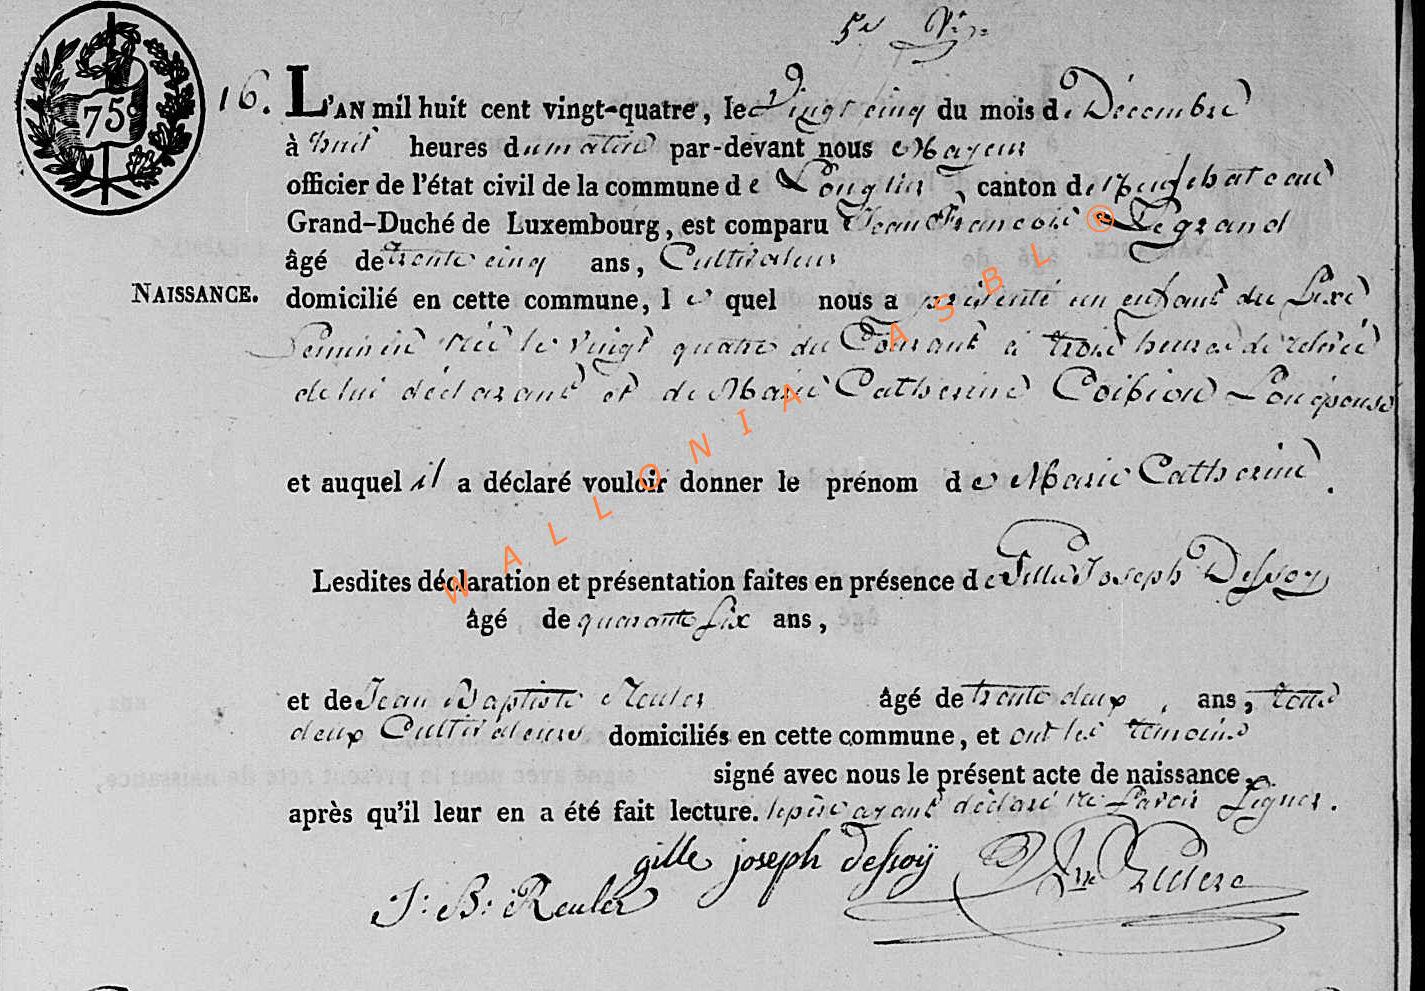 5e
75c
16. L'AN mil huit cent vingt-quatre, le Vingt cinq du mois de Décembre
à huit heures du matin par-devant nous Mayeur
officier de l'état civil de la commune de Longlier, canton de Neufchateau
Grand-Duché de Luxembourg, est comparu Jean François Legrand
âgé de trente cinq ans, Cultivateur
NAISSANCE. domicilié en cette commune, le quel nous a présenté un enfant du Sexe
Feminin née le vingt quatre du Courant à trois heures de relevée
de lui déclarant et de Marie Catherine son épouse
et auquel il a déclaré vouloir donner le prénom de Marie Catherine.
Lesdites déclaration et présentation faites en présence de Gille Joseph Dessoy
âgé de quarante six ans,
et de Jean Baptiste Reuler âgé de trente deux, ans, tous
deux Cultivateurs domiciliés en cette commune, et ont les temoins
signé avec nous le présent acte de naissance,
après qu'il leur en a été fait lecture. le père ayant déclaré ne savoir signer.
gille joseph dessoÿ
J: B: Reuler
WALLONIA ASBL ®